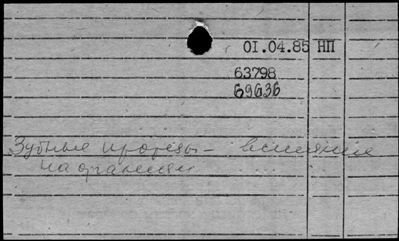 01.04.85 НП
63798
69636
Зубные протезы - влияние
на организм